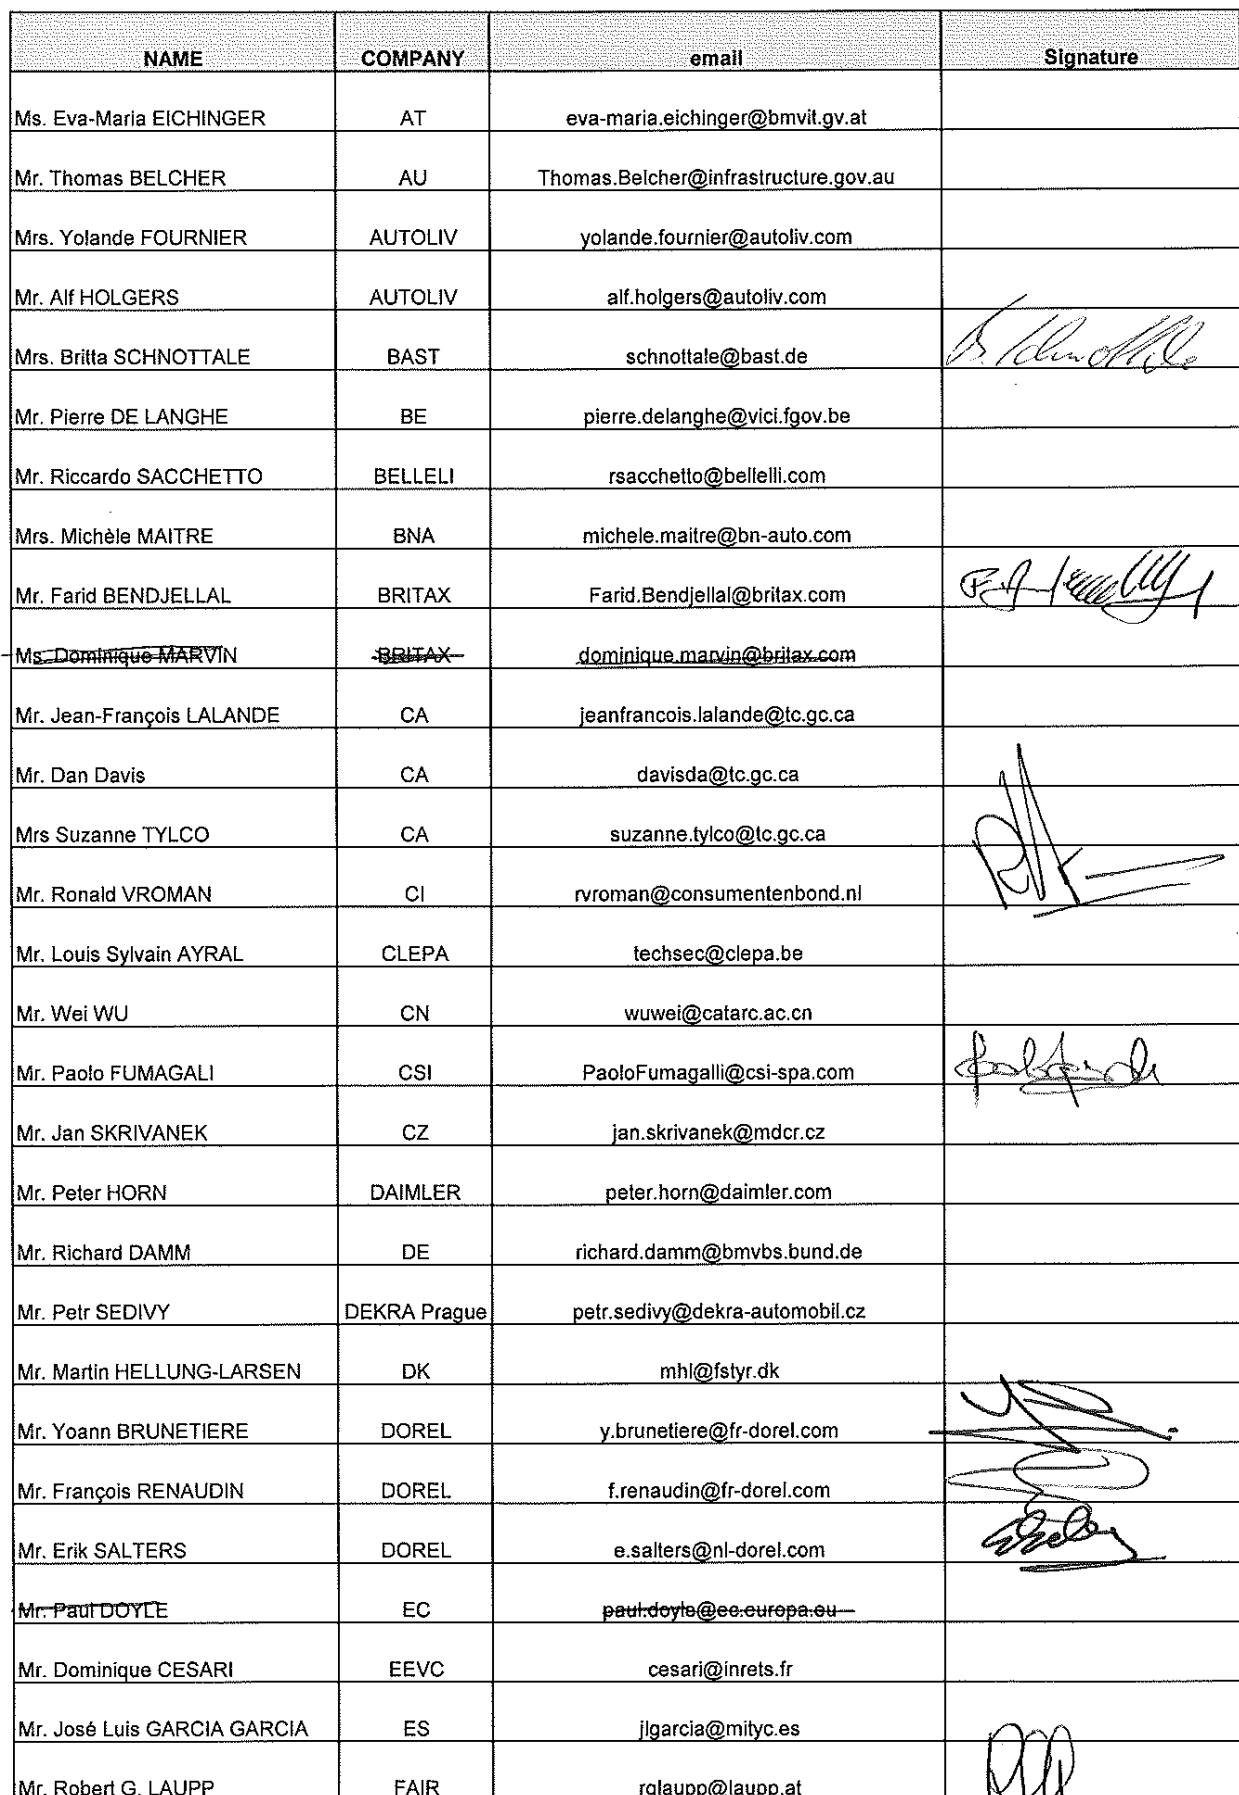 NAME COMPANY email Signature
Ms. Eva-Maria EICHINGER AT eva-maria.eichinger@bmvit.gv.at
Mr. Thomas BELCHER AU Thomas.Belcher@infrastructure.gov.au
Mrs. Yolande FOURNIER AUTOLIV yolande.fournier@autoliv.com
Mr. Alf HOLGERS AUTOLIV alf.holgers@autoliv.com
Mrs. Britta SCHNOTTALE BAST schnottale@bast.de B. Schnottale
Mr. Pierre DE LANGHE BE pierre.delanghe@vici.fgov.be
Mr. Riccardo SACCHETTO BELLELI rsacchetto@bellelli.com
Mrs. Michèle MAITRE BNA michele.maitre@bn-auto.com
Mr. Farid BENDJELLAL BRITAX Farid.Bendjellal@britax.com
Ms. Dominique MARVIN BRITAX dominique.marvin@britax.com
Mr. Jean-François LALANDE CA jeanfrancois.lalande@tc.gc.ca
Mr. Dan Davis CA davisda@tc.gc.ca
Mrs Suzanne TYLCO CA suzanne.tylco@tc.gc.ca
Mr. Ronald VROMAN CI rvroman@consumentenbond.nl
Mr. Louis Sylvain AYRAL CLEPA techsec@clepa.be
Mr. Wei WU CN wuwei@catarc.ac.cn
Mr. Paolo FUMAGALI CSI PaoloFumagalli@csi-spa.com
Mr. Jan SKRIVANEK CZ jan.skrivanek@mdcr.cz
Mr. Peter HORN DAIMLER peter.horn@daimler.com
Mr. Richard DAMM DE richard.damm@bmvbs.bund.de
Mr. Petr SEDIVY DEKRA Prague petr.sedivy@dekra-automobil.cz
Mr. Martin HELLUNG-LARSEN DK mhl@fstyr.dk
Mr. Yoann BRUNETIERE DOREL y.brunetiere@fr-dorel.com
Mr. François RENAUDIN DOREL f.renaudin@fr-dorel.com
Mr. Erik SALTERS DOREL e.salters@nl-dorel.com
Mr. Paul DOYLE EC paul.doyle@ec.europa.eu
Mr. Dominique CESARI EEVC cesari@inrets.fr
Mr. José Luis GARCIA GARCIA ES jlgarcia@mityc.es
Mr. Robert G. LAUPP FAIR rglaupp@laupp.at